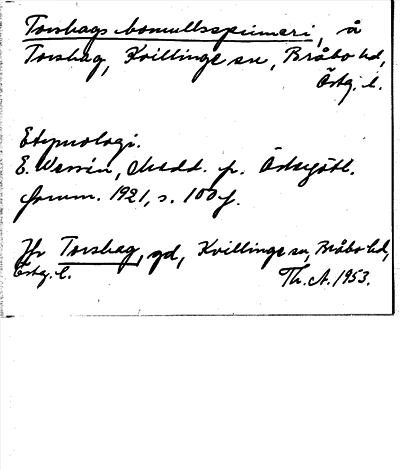 Torshags bomullsspinneri, å
Torshag, Kvillinge sn, Bråbo hd,
Östg. l.
Etymologi.
E. Wessén, Medd. fr. Östergötl.
fornm. 1921, s. 100 f.
Jfr Torshag, gd, Kvillinge sn, Bråbo hd,
Östg. l.
Th. A. 1953.